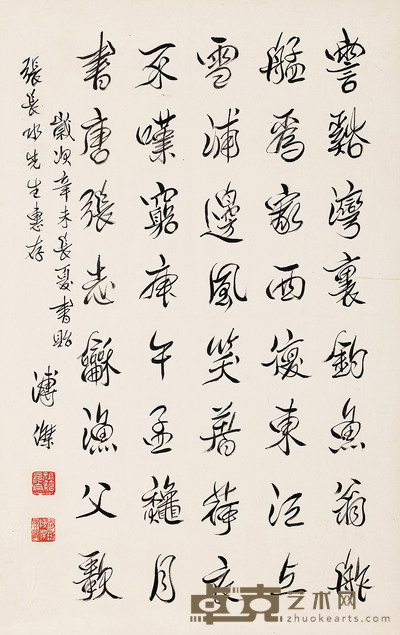 霅谿灣裏釣魚翁舴
艋爲家西復東江上
雪浦邊風笑著荷衣
不嘆窮庚午孟龝月
書唐張志龢漁父歌
歲次辛未長夏書貽
張長水先生惠存
溥傑
卓克艺术网
www.zhuokearts.com